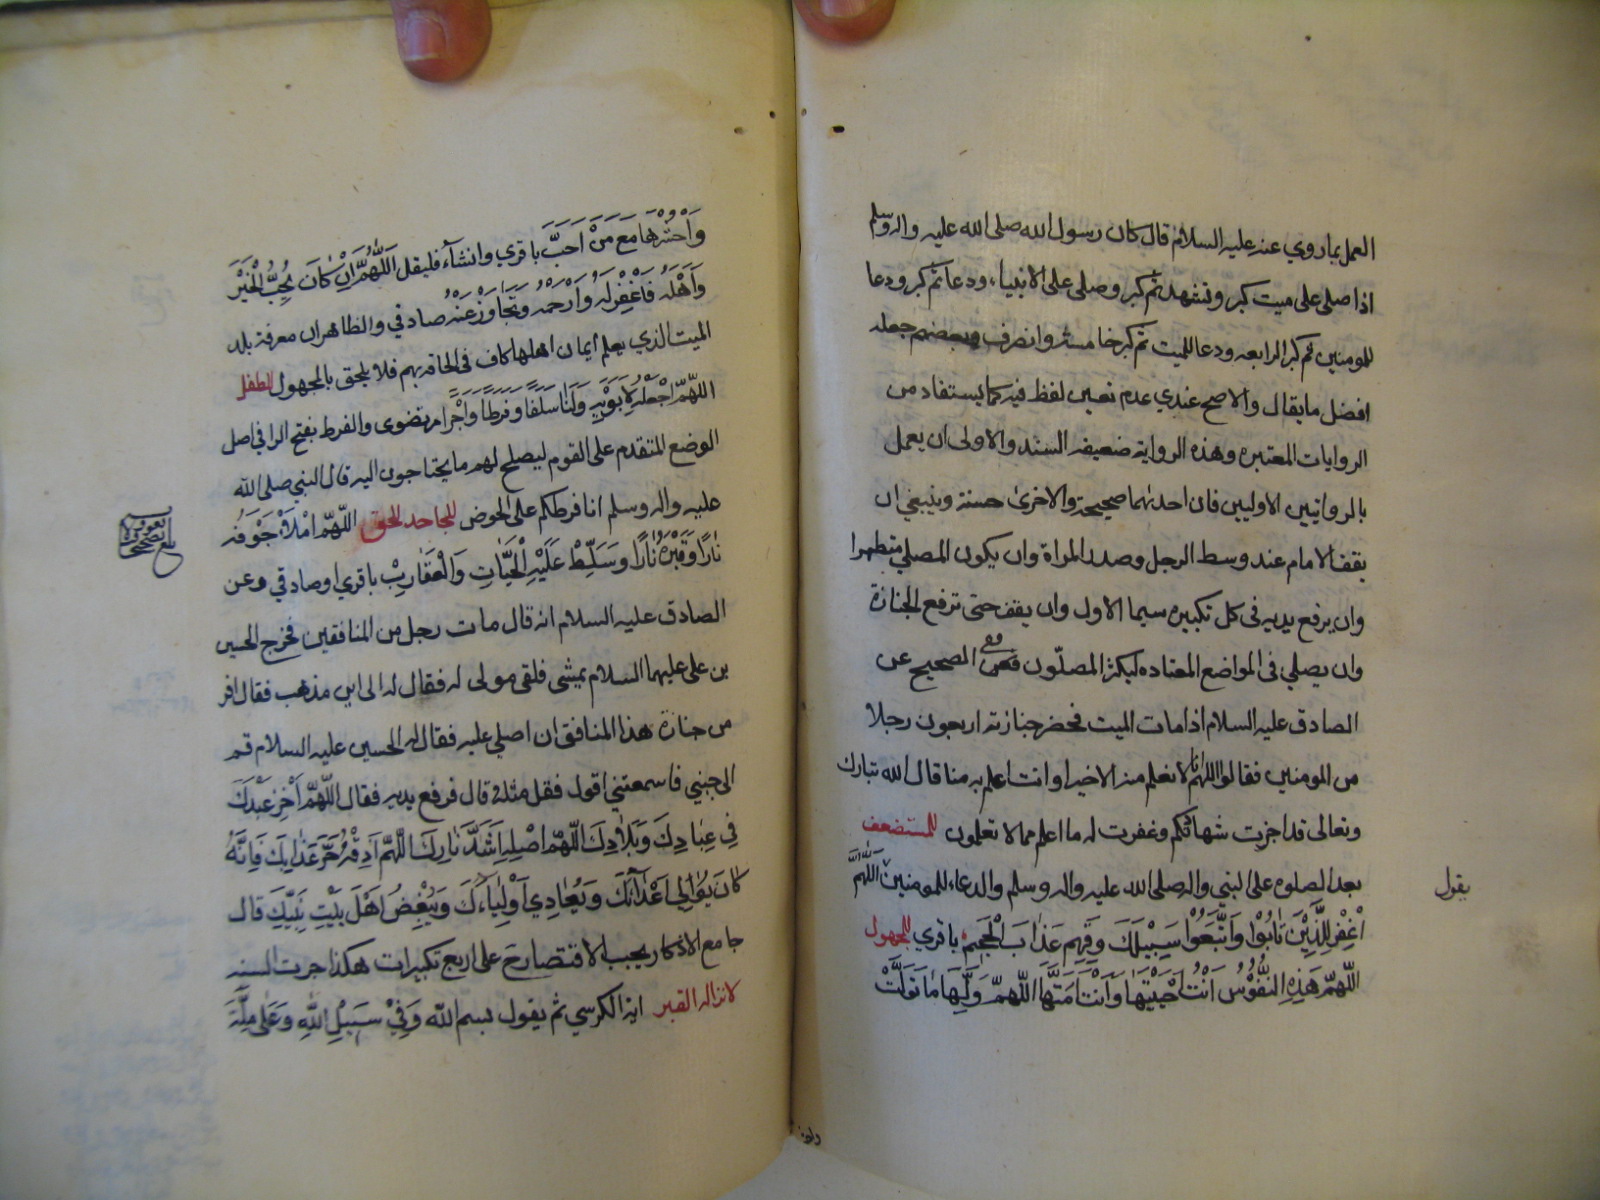 العمل بما روي عنه عليه السلام قال كان رسول الله صلى الله عليه واله وسلم
اذا صلى على ميت كبر وتشهد ثم كبر وصلى على الانبياء ودعا ثم كبر ودعا
للمومنين ثم كبر الرابعه ودعا للميت ثم كبر خامسة وانصرف وبعضهم جعله
افضل ما يقال والاصح عندي عدم تعيين لفظ فيه كما يستفاد من
الروايات المعتبره وهذه الرواية ضعيفه السند والاولى ان يعمل
بالروايتين الاوليين فان احديهما صحيحة والاخرى حسنة وينبغي ان
يقف الامام عند وسط الرجل وصدر المراة وان يكون المصلي متطهرا
وان يرفع يديه في كل تكبيره سيما الاول وان يقف حتى ترفع الجنازة
وان يصلي في المواضع المعتاده ليكثر المصلون ففي الصحيح عن
الصادق عليه السلام اذا مات الميت فحضر جنازته اربعون رجلا
من المومنين فقالوا اللهم انا لا نعلم منه الا خيرا وانت اعلم به منا قال الله تبارك
وتعالى قد اجزت شهاداتكم وغفرت له ما اعلم مما لا تعلمون للمستضعف
بعد الصلوه على النبي واله صلى الله عليه واله وسلم والدعاء للمومنين اَللّٰهُمَّ
يقول
اغْفِرْ لِلَّذِيْنَ تٰابُوْا وَاتَّبَعُوْا سَبِيْلَكَ وَقِهِم عَذٰابَ الْجَحِيمِ باقري للمجهول
اللّهمّ هَذِهِ النُّفُوْسُ اَنْتَ اَحْيَيْتَهٰا وَاَنْتَ اَمَتَّهَا اللّهمّ وَلِّهَا مٰا تَوَلَّتْ
واحش
وَاحْشُرْهٰا مَعَ مَنْ اَحَبَّ باقري وان شاء فليقل اَللّٰهُمَّ اِنْ كٰانَ يُحِبُّ الْخَيْرَ
وَاَهْلَهُ فَاغْفِرْ لَهُ وَارْحَمْهُ وَتَجٰاوَزْ عَنْهُ صادقي والظاهر ان معرفة بلد
الميت الذي يعلم ايمان اهلها كاف في الحاقه بهم فلا يلحق بالمجهول للطفل
اللّهمّ اجْعَلْهُ لِاَبَوَيْهِ وَلَنَا سَلَفًا وَفَرَطًا وَاَجْرًا مرتضوى والفرط بفتح الرا في اصل
الوضع المتقدم على القوم ليصلح لهم ما يحتاجون اليه قال النبي صلى الله
عليه واله وسلم انا فرطكم على الحوض للجاحد للحق اللّهمّ امْلَاْ جَوْفَه
نٰارًا وَقَبْرَهُ نٰارًا وَسَلِّطْ عَلَيْهِ الْحَيّٰاتِ وَالْعَقٰارِبَ باقري او صادقي وعن
الصادق عليه السلام انه قال مات رجل من المنافقين فخرج الحسين
بن علي عليهما السلام يمشي فلقى مولى له فقال له الى اين مذهب فقال افر
من جنازة هذا المنافق ان اصلي عليه فقال له الحسين عليه السلام قم
الى جنبي فما سمعتني اقول فقل مثله قال فرفع يديه فقال اللّهمّ اَخْزِ عَبْدَكَ
فِي عِبٰادِكَ وَبِلٰادِكَ اللّهمّ اَصْلِهِ اَشَدَّ نٰارِكَ اللّهمّ اَذِقْهُ حَرَّ عَذٰابِكَ فَاِنَّهُ
كٰانَ يُوٰالِي اَعْدٰائَكَ وَيُعٰادِي اَوْلِيٰاءَكَ وَيُبْغِضُ اَهْلَ بَيْتِ نَبِيِّكَ قال
جامع الاذكار يجب الاقتصار ح على اربع تكبيرات هكذا جرت السنه
لانزاله القبر اية الكرسي ثم يقول بسم اللهِ وَفِيْ سَبِيْلِ اللهِ وَعَلٰى مِلَّةِ